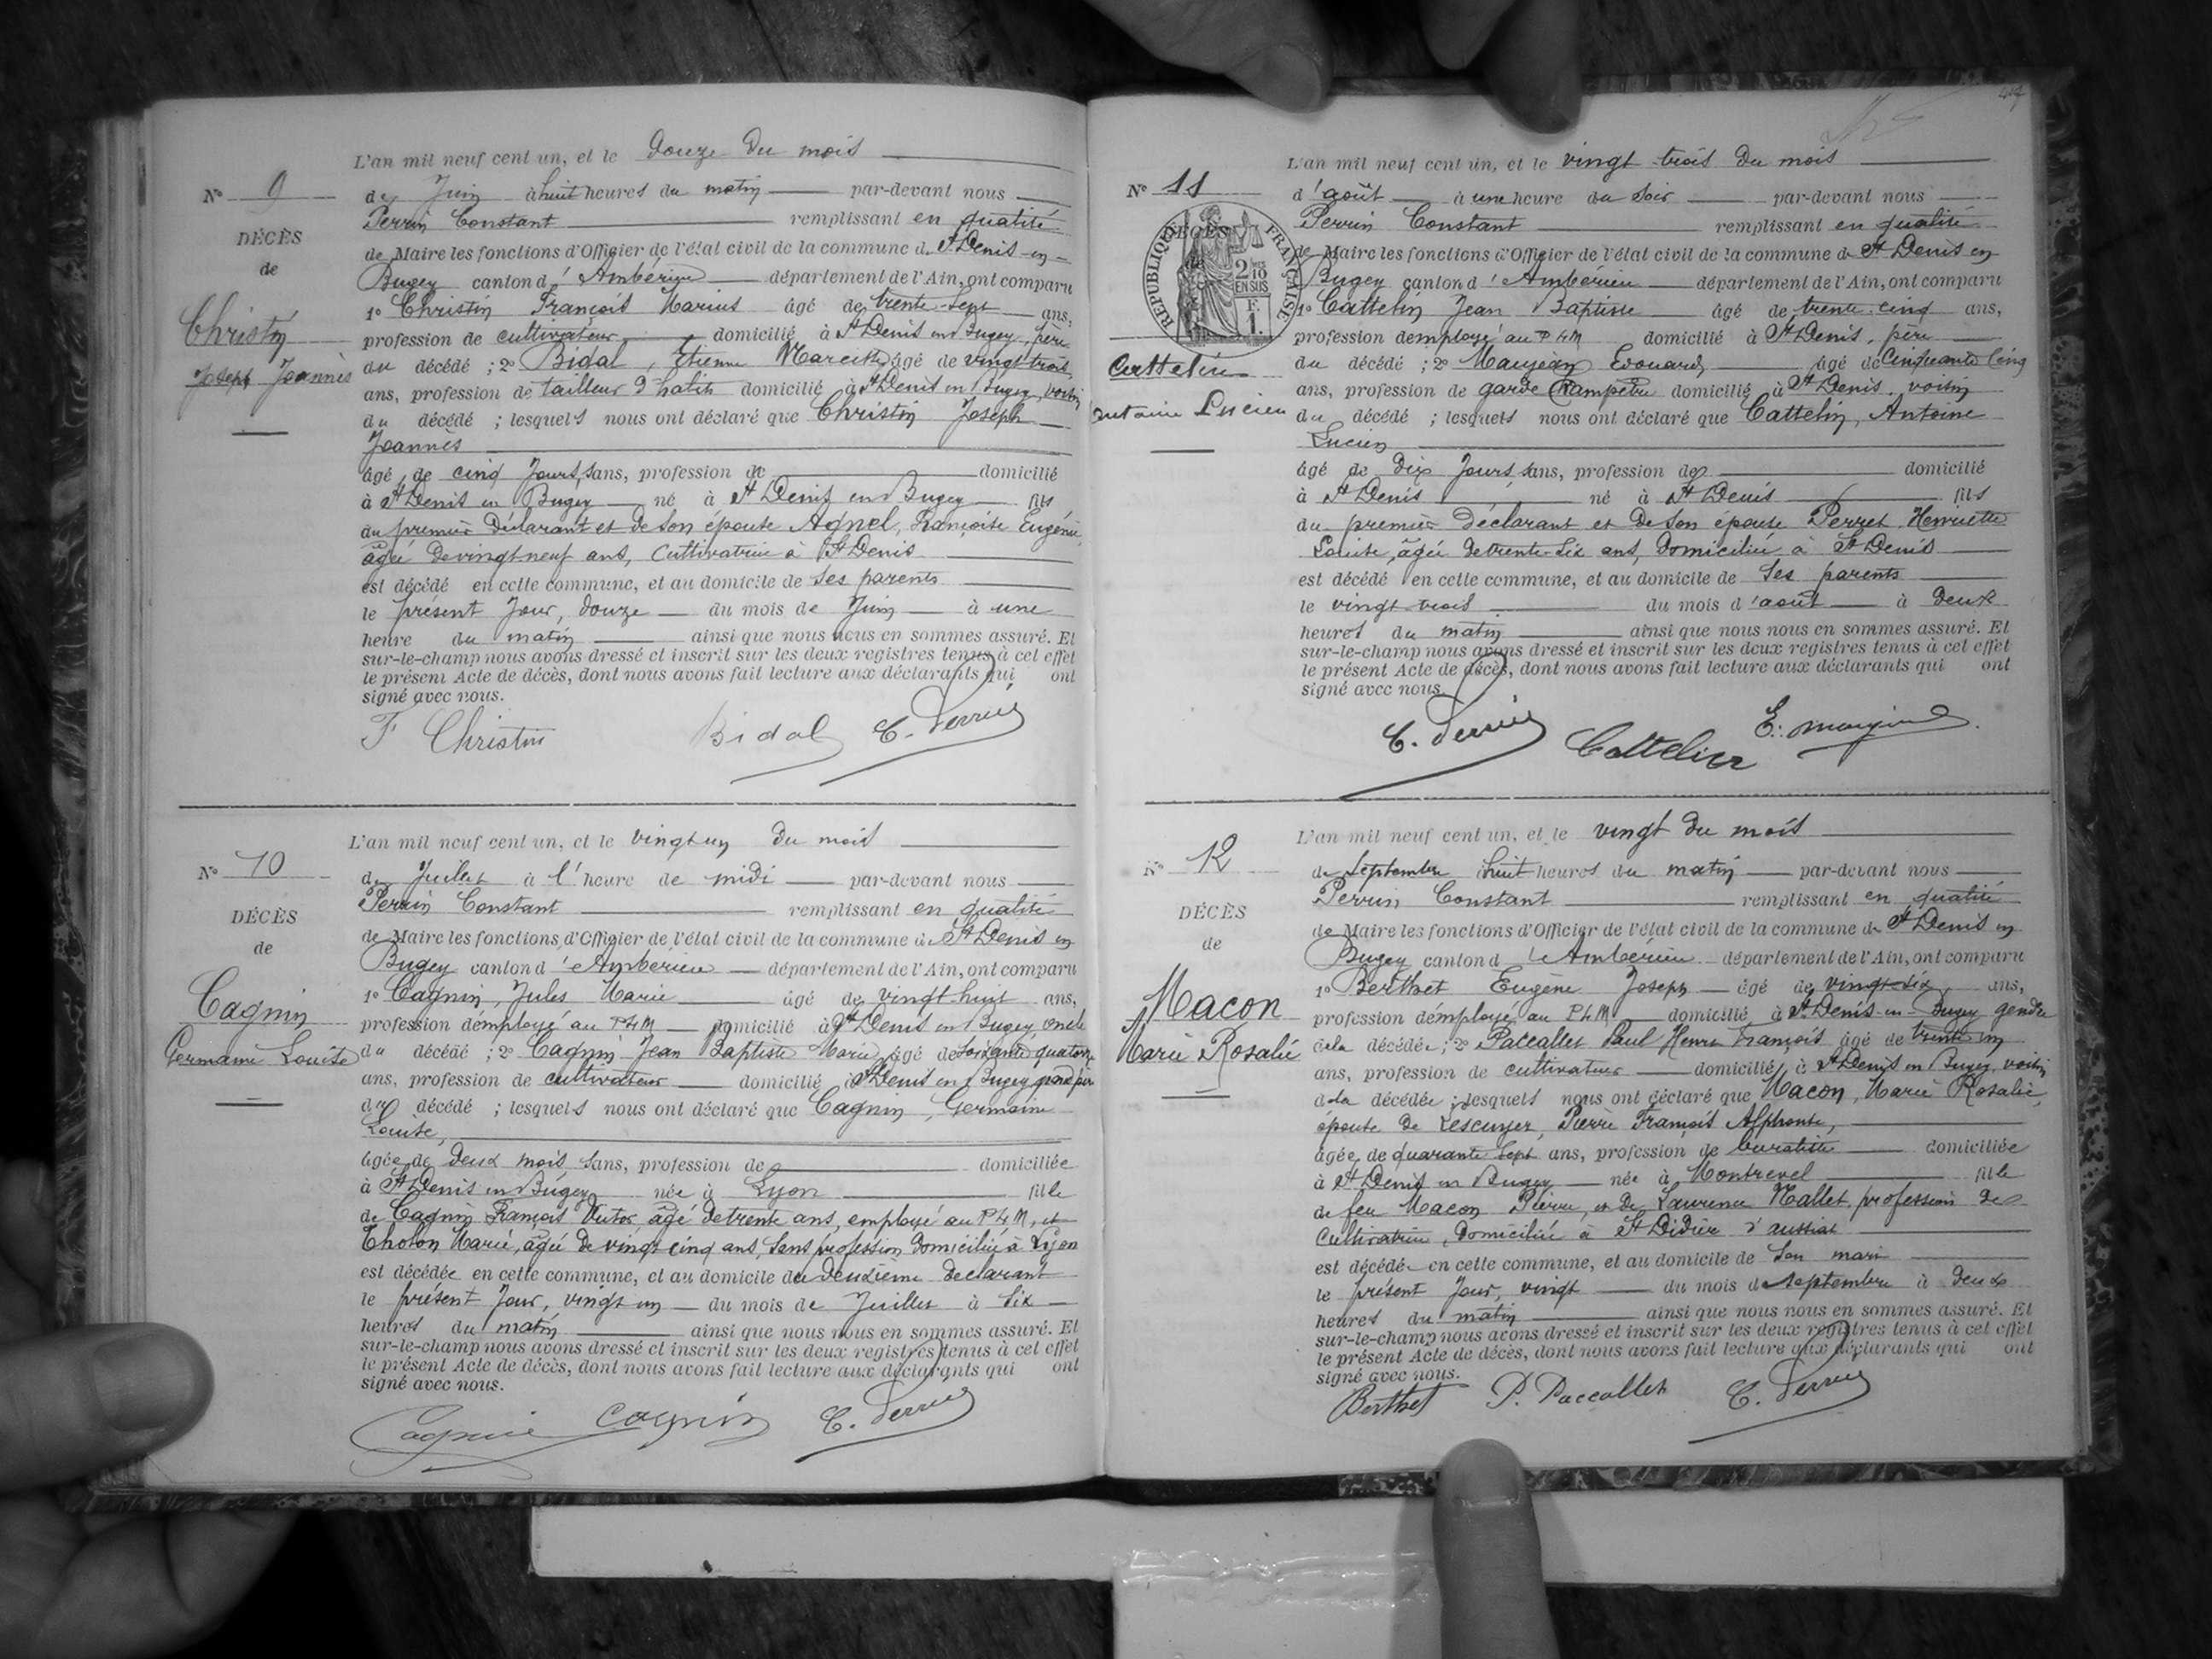 L'an mil neuf cent un, et le douze du mois
N° 9
de Juin à huit heures du matin par-devant nous
Perrin Constant remplissant en qualité
DÉCÈS
de Maire les fonctions d'Officier de l'état civil de la commune de St Denis en
de
Bugey canton d'Ambérieu département de l'Ain, ont comparu
1° Christin François Marius âgé de trente-sept ans,
Christin
profession de cultivateur domicilié à St Denis en Bugey, père
Joseph Joannès
du décédé ; 2° Bidal, Etienne Marcille âgé de vingt trois
ans, profession de tailleur d'habits domicilié à St Denis en Bugey, voisin
du décédé ; lesquels nous ont déclaré que Christin Joseph
Joannès
âgé de cinq jours, sans, profession de domicilié
à St Denis en Bugey né à St Denis en Bugey fils
du premier déclarant et de son épouse Agnel, Françoise Eugénie
âgée de vingt neuf ans, cultivatrice à St Denis
est décédé en cette commune, et au domicile de ses parents
le présent jour, douze du mois de Juin à une
heure du matin ainsi que nous nous en sommes assuré. Et
sur-le-champ nous avons dressé et inscrit sur les deux registres tenus à cet effet
le présent Acte de décès, dont nous avons fait lecture aux déclarants qui ont
signé avec nous.
F Christin Bidal C. Perrin
L'an mil neuf cent un, et le vingt un du mois
N° 10
de Juillet à l'heure de midi par-devant nous
Perrin Constant remplissant en qualité
DÉCÈS
de Maire les fonctions d'Officier de l'état civil de la commune de St Denis en
de
Bugey canton d'Ambérieu département de l'Ain, ont comparu
1° Cagnin, Jules Marie âgé de vingt huit ans,
Cagnin
profession d'employé au PLM domicilié à St Denis en Bugey, oncle
Germaine Louise
du décédé ; 2° Cagnin Jean Baptiste Marie, âgé de soixante quatorze
ans, profession de cultivateur domicilié à St Denis en Bugey grand père
du décédé ; lesquels nous ont déclaré que Cagnin, Germaine
Louise,
âgée de deux mois, sans, profession de domiciliée
à St Denis en Bugey née à Lyon fille
de Cagnin François Victor, âgé de trente ans, employé au PLM, et
Tholon Marie, âgée de vingt cinq ans, sans profession domiciliée à Lyon
est décédée en cette commune, et au domicile du deuxième déclarant
le présent jour, vingt un du mois de Juillet à six
heures du matin ainsi que nous nous en sommes assuré. Et
sur-le-champ nous avons dressé et inscrit sur les deux registres tenus à cet effet
le présent Acte de décès, dont nous avons fait lecture aux déclarants qui ont
signé avec nous.
Cagnin Cagnin C. Perrin
L'an mil neuf cent un, et le vingt-trois du mois
N° 11
d'août à une heure du soir par-devant nous
Perrin Constant remplissant en qualité
DÉCÈS
RÉPUBLIQUE FRANÇAISE
2/10 EN SUS
F. 1.
de Maire les fonctions d'Officier de l'état civil de la commune de St Denis en
Bugey canton d'Ambérieu département de l'Ain, ont comparu
1° Cattelin Jean Baptiste âgé de trente-cinq ans,
profession d'employé au PLM domicilié à St Denis, père
Cattelin
du décédé ; 2° Maujean Edouard, âgé de cinquante cinq
ans, profession de garde champêtre domicilié à St Denis, voisin
Antoine Lucien
du décédé ; lesquels nous ont déclaré que Cattelin, Antoine
Lucien
âgé de dix jours, sans, profession de domicilié
à St Denis né à St Denis fils
du premier déclarant et de son épouse Perret Henriette
Louise, âgée de trente-six ans, domiciliée à St Denis
est décédé en cette commune, et au domicile de ses parents
le vingt-trois du mois d'août à deux
heures du matin ainsi que nous nous en sommes assuré. Et
sur-le-champ nous avons dressé et inscrit sur les deux registres tenus à cet effet
le présent Acte de décès, dont nous avons fait lecture aux déclarants qui ont
signé avec nous.
C. Perrin Cattelin E. maujean
L'an mil neuf cent un, et le vingt du mois
N° 12
de Septembre à huit heures du matin par-devant nous
Perrin Constant remplissant en qualité
DÉCÈS
de Maire les fonctions d'Officier de l'état civil de la commune de St Denis en
de
Bugey canton d'Ambérieu département de l'Ain, ont comparu
1° Berthet Eugène Joseph âgé de vingt-six ans,
Macon
profession d'employé au PLM domicilié à St Denis-en-Bugey gendre
Marie Rosalie
de la décédée ; 2° Paccallet Paul Henri François âgé de trente un
ans, profession de cultivateur domicilié à St Denis en Bugey, voisin
de la décédée ; lesquels nous ont déclaré que Macon, Marie Rosalie,
épouse de Lescuyer, Pierre François Alphonse,
âgée de quarante sept ans, profession de buraliste domiciliée
à St Denis en Bugey née à Montrevel fille
de feu Macon Pierre, et de Laurence Mallet profession de
cultivatrice, domiciliée à St Didier d'aussiat
est décédée en cette commune, et au domicile de son mari
le présent jour, vingt du mois de septembre à deux
heures du matin ainsi que nous nous en sommes assuré. Et
sur-le-champ nous avons dressé et inscrit sur les deux registres tenus à cet effet
le présent Acte de décès, dont nous avons fait lecture aux déclarants qui ont
signé avec nous.
Berthet P. Paccallet C. Perrin